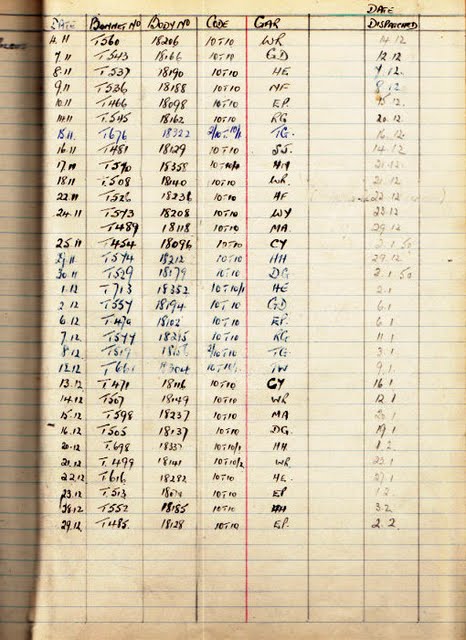 DATE
DATE BONNET NO BODY NO CODE GAR DISPATCHED
4.11 T.560 18206 10T10 WR 14.12
7.11 T.543 18166 10T10 GD 12.12
8.11 T.537 18190 10T10 HE 7.12
9.11 T.536 18188 10T10 NF 8.12
10.11 T.466 18098 10T10 EP. 15.12
11.11 T.545 18162 10T10 RG 20.12
15.11 T.676 18322 2/10T10/1 TG. 16.12
16.11 T.481 18129 10T10 SJ. 14.12
17.11 T.590 18358 10T10/1 HH 21.12
18.11 T.508 18140 10T10 WR. 21.12
22.11 T.526 18236 10T10 AF 22.12
24.11 T.573 18208 10T10 WY 23.12
T.489 18118 10T10 MA. 29.12
25.11 T.454 18096 10T10 CY 2.1.50
29.11 T.574 18212 10T10 HH 29.12
30.11 T.529 18179 10T10 DG. 2.1.50
1.12 T.713 18352 10T10/1 HE 2.1
2.12 T.557 18194 10T10 GD 6.1
6.12 T.470 18102 10T10 EP. 6.1
7.12 T.577 18215 10T10 RG 11.1
8.12 T.519 18156 2/10T10 TG. 3.1
12.12 10T10/1 TW 9.1
13.12 T.471 18116 10T10 CY 16.1
14.12 T.507 18149 10T10 WR 12.1
15.12 T.598 18237 10T10 MA 23.1
16.12 T.505 18137 10T10 DG. 19.1
20.12 T.698 18337 10T10/1 HH 1.2
21.12 T.499 18141 10T10/2 WR. 23.1
22.12 T.616 18282 10T10 HE. 27.1
23.12 T.513 18071 10T10 EP 1.2
28.12 T.552 18185 10T10 HH 3.2
29.12 T.485 18128 10T10 EP. 2.2